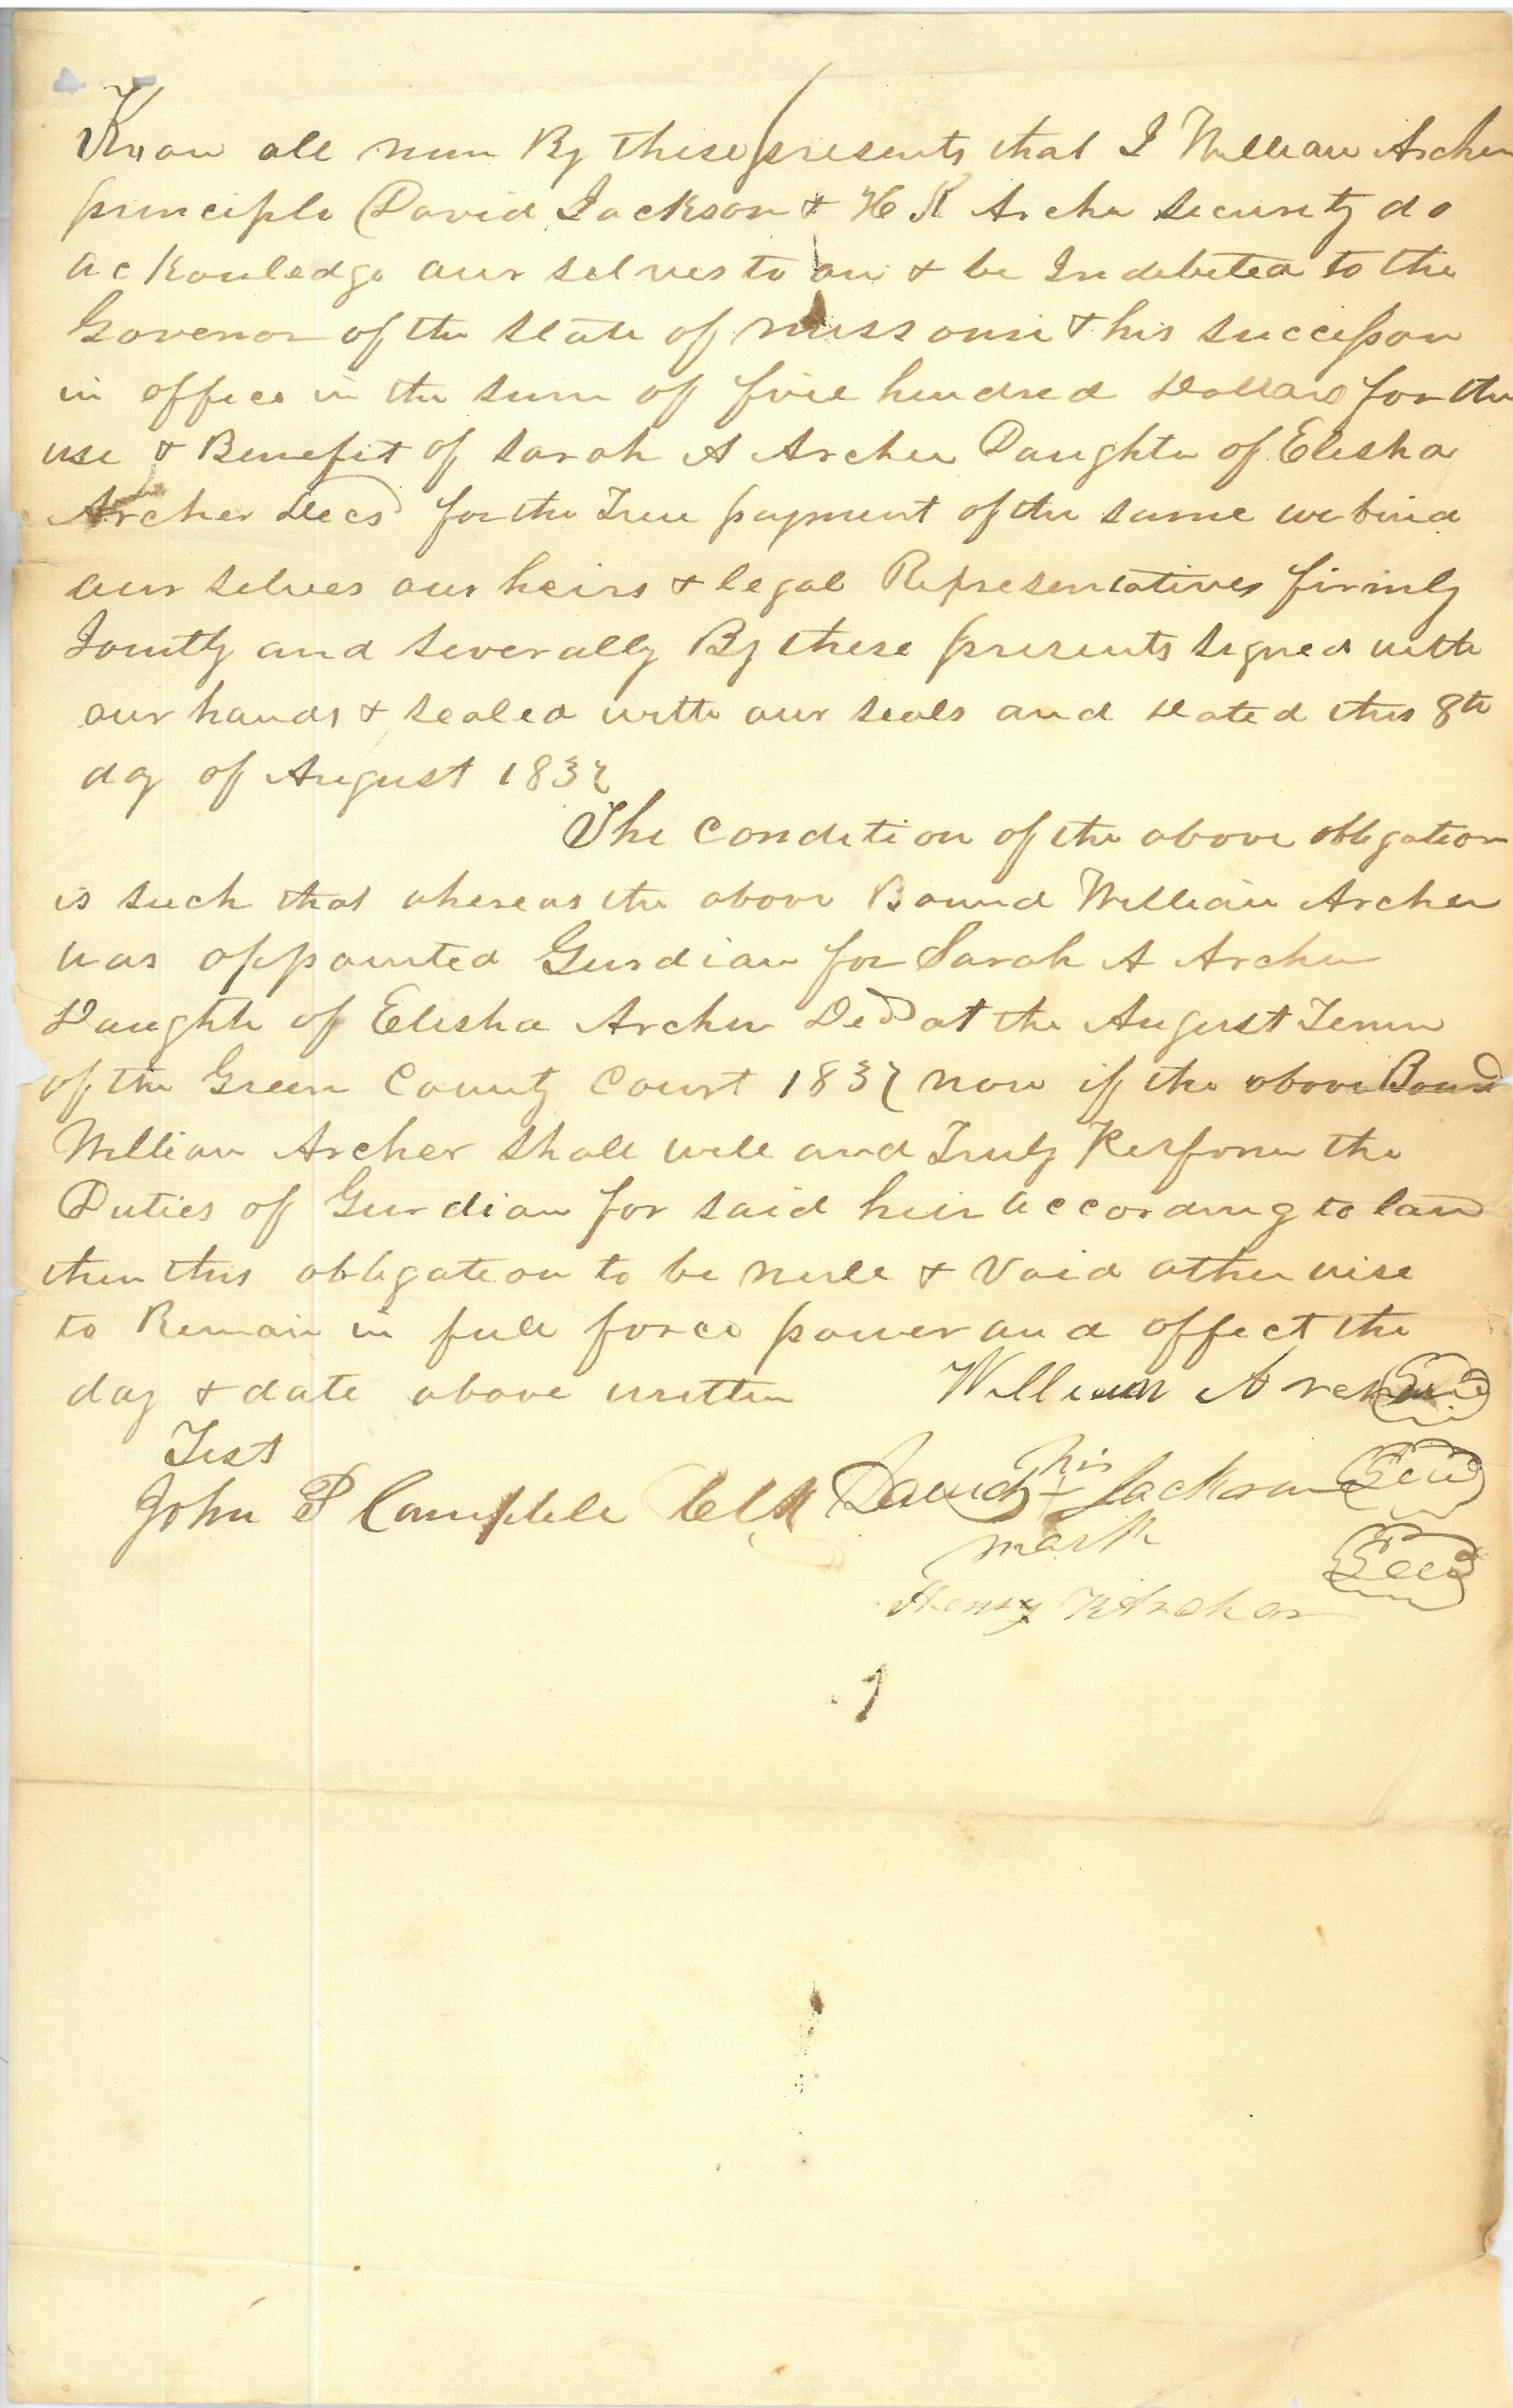 Know all men By these presents that I William Archer
principle David Jackson & H K Archer Security do
acknowledge our selves to ow & be Indebited to the
Govenor of the State of missouri & his successors
in office in the sum of five hundred Dollars for the
use & Benefit of Sarah A Archer Daughter of Elisha
Archer Decd for the True payment of the same we bind
our selves our heirs & legal Representatives firmly
Jointly and severally By these presents signed with
our hands & sealed with our seals and Dated this 8th
day of August 1837
The condition of the above obligation
is such that whereas the above Bound William Archer
was appointed Gurdian for Sarah A Archer
Daughter of Elisha Archer Decd at the August Term
of the Green County Court 1837 now if the above Bound
William Archer shall well and Truly Perform the
Duties of Gurdian for said heir according to law
then this obligation to be null & void other wise
to Remain in full force power and effect the
day & date above written William Archer Seal
Test
John P Campbell Clk David his + Jackson Seal
mark
Henry K Archer Seal